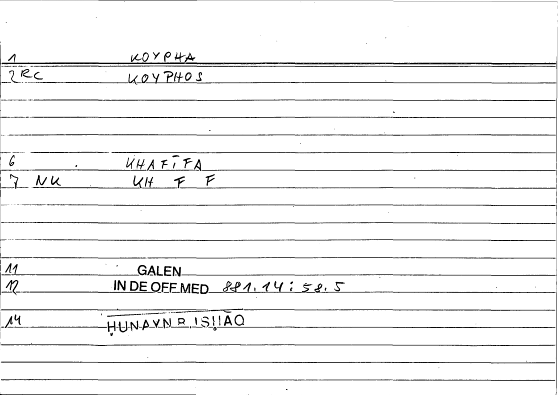 1 KOYPHA
2 RC KOYPHOS
6 KHAFĪFA
7 NK KH F F
11 GALEN
12 IN DE OFF.MED 881.14:58.5
14 ḤUNAYN B.ISḤĀQ